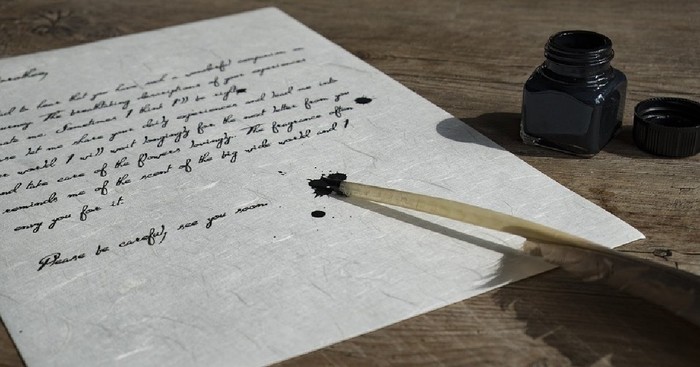 to have that you have had a wonderful companion on
The breathtaking descriptions of your experiences
me. Sometimes I think I'll be right
let me share your daily experiences and lead me into
world. I will wait longingly for the next letter from you
and take care of the flowers lovingly. The fragrance often
reminds me of the scent of the big wide world and I
envy you for it.
Please be careful, see you soon